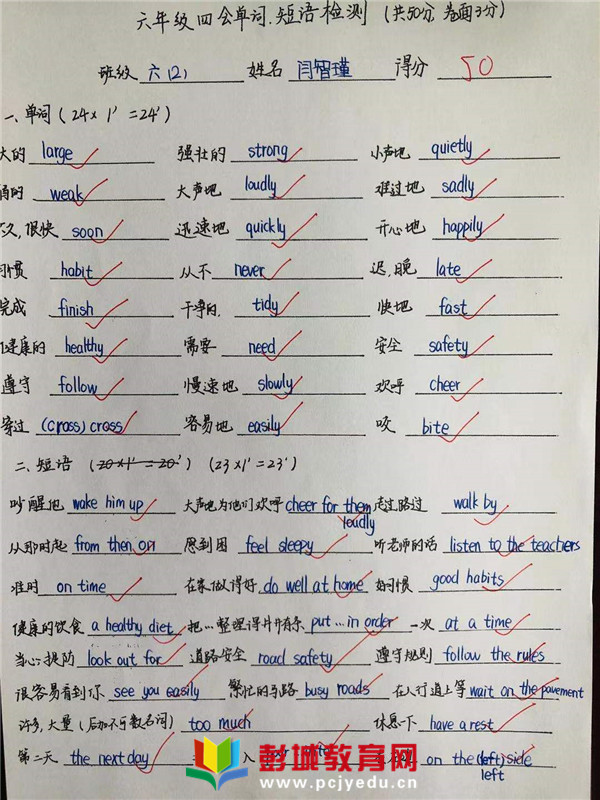 六年级四会单词.短语检测 (共50分,卷面3分)
班级 六(2) 姓名 闫智瑾 得分 50
一、单词(24×1'=24')
大的 large 强壮的 strong 小声地 quietly
弱的 weak 大声地 loudly 难过地 sadly
不久,很快 soon 迅速地 quickly 开心地 happily
习惯 habit 从不 never 迟,晚 late
完成 finish 干净的, tidy 快地 fast
健康的 healthy 需要 need 安全 safety
遵守 follow 慢速地 slowly 欢呼 cheer
穿过 (cross) cross 容易地 easily 咬 bite
二、短语 (20×1'=20') (23×1'=23')
吵醒他 wake him up 大声地为他们欢呼 cheer for them loudly 走过路过 walk by
从那时起 from then on 感到困 feel sleepy 听老师的话 listen to the teachers
准时 on time 在家做得好 do well at home 好习惯 good habits
健康的饮食 a healthy diet 把…整理得井井有条 put...in order 一次 at a time
当心;提防 look out for 道路安全 road safety 遵守规则 follow the rules
很容易看到你 see you easily 繁忙的马路 busy roads 在人行道上等 wait on the pavement
许多,大量(后加不可数名词) too much 休息一下 have a rest
第二天 the next day 入 on the (left) side
left
彭城教育网
www.pcjyedu.cn